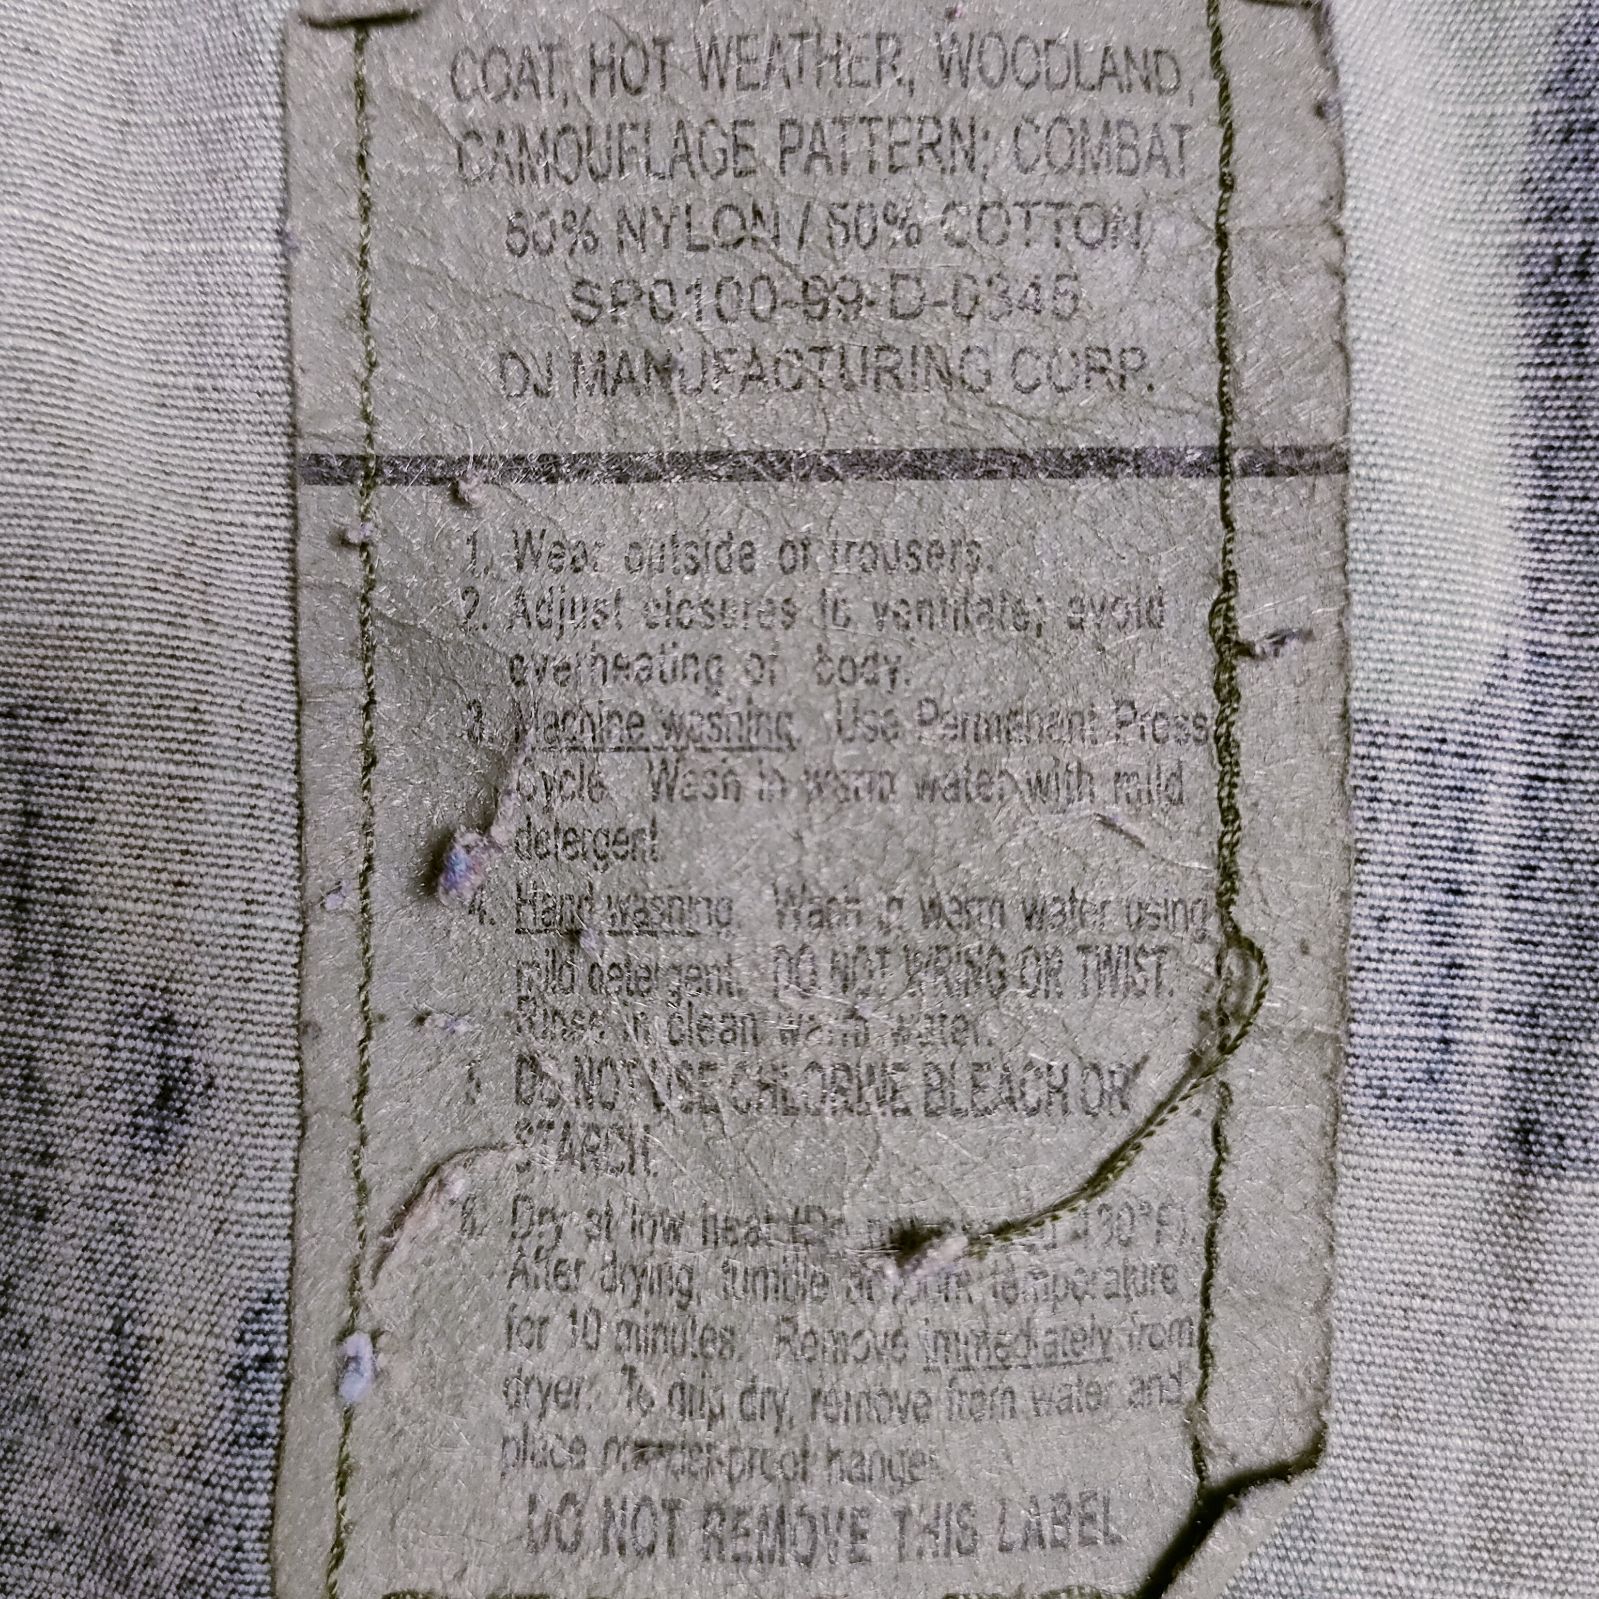 COAT, HOT WEATHER, WOODLAND,
CAMOUFLAGE PATTERN; COMBAT
50% NYLON / 50% COTTON
SP0100-99-D-0345
DJ MANUFACTURING CORP.
1. Wear outside of trousers.
2. Adjust closures to ventilate; avoid
overheating of body.
3. Machine washing. Use Permanent Press
Cycle. Wash in warm water with mild
detergent.
4. Hand washing. Wash in warm water using
mild detergent. DO NOT WRING OR TWIST.
Rinse in clean warm water.
5. DO NOT USE CHLORINE BLEACH OR
STARCH.
6. Dry at low heat (Do not 130°F).
After drying, tumble at temperature
for 10 minutes. Remove immediately from
dryer. To drip dry, remove from water and
place on proof hanger
DO NOT REMOVE THIS LABEL